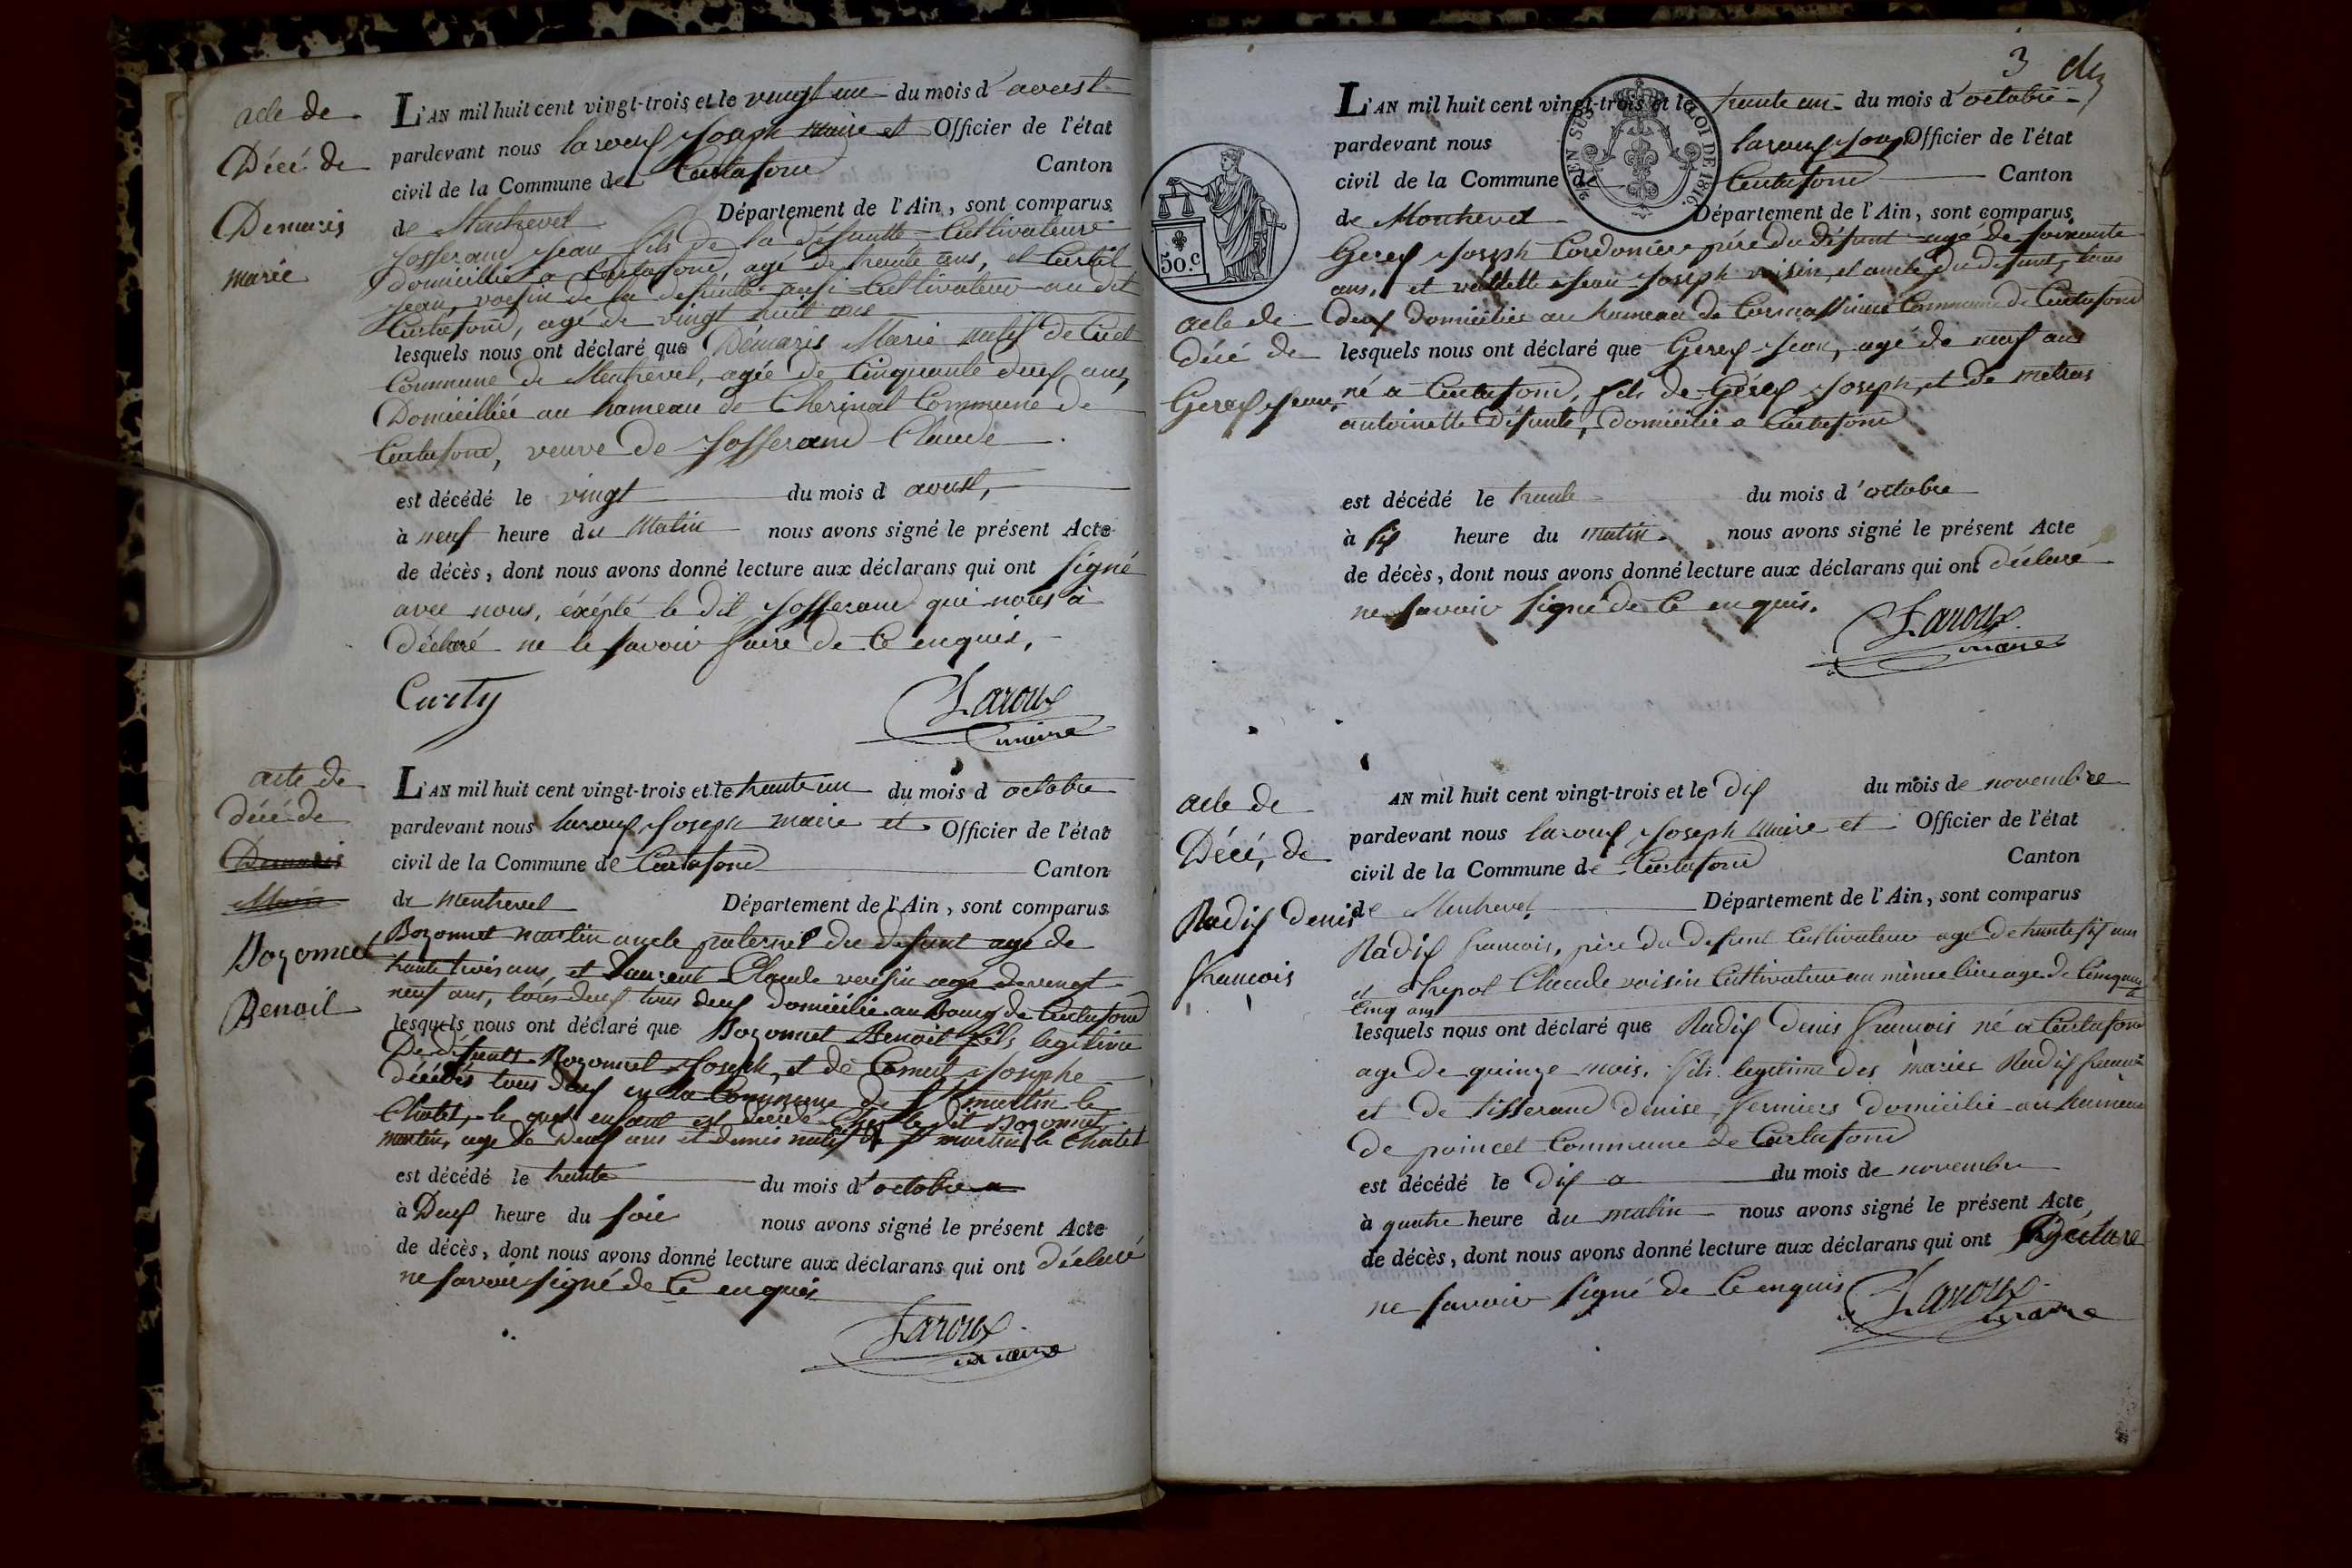 acte de
Décé de
Demaris
marie
L'AN mil huit cent vingt-trois et le vingt un du mois d'avoust
pardevant nous laroux Joseph maire et Officier de l'état
civil de la Commune de Curtafond Canton
de Montrevel Département de l'Ain, sont comparus
Josserand Jean fils de la défuntte Cultivateur
domicillié a Curtafond, agé de trente ans, et Curtil
Jean, voisin de la defuntte aussi Cultivateur au dit
Curtafond, agé de vingt huit ans
lesquels nous ont déclaré que Démaris Marie natif de Cuet
Commune de Montrevel, agée de Cinquante deux ans,
Domicilliée au hameau de Cherinal Commune de
Curtafond, veuve de Josserand Claude
est décédé le vingt du mois d avoust,
à neuf heure du Matin nous avons signé le présent Acte
de décès, dont nous avons donné lecture aux déclarans qui ont signé
avec nous, éxépté le dit Josserand qui nous à
Déclaré ne le savoir faire de Ce enquis,
Curty Laroux
maire
acte de
décé de
Demaris
Marie
Bozonnet
Benoit
L'AN mil huit cent vingt-trois et le trente un du mois d octobre
pardevant nous laroux Joseph maire et Officier de l'état
civil de la Commune de Curtafond Canton
de montrevel Département de l'Ain, sont comparus
Bozonnet martin oncle paternel du defunt agé de
trente trois ans, et Laurent Claude voisin agé de vingt
neuf ans, tous deux tous deux domicilié au Bourg de Curtafond
lesquels nous ont déclaré que Bozonnet Benoit fils legitime
De défunts Bozonnet Joseph, et de Comert Josephe
décédés tous deux en la Commune de St martin le
Chatel, le quel enfant est décédé Chez le dit Bozonnet
martin, agé de Deux ans et demis natif de St martin le Chatel
est décédé le trente du mois d'octobre
à Deux heure du soir nous avons signé le présent Acte
de décès, dont nous avons donné lecture aux déclarans qui ont déclaré
ne savoir signé de Ce enquis
Laroux
maire
3
L'AN mil huit cent vingt-trois et le trente un du mois d'octobre
pardevant nous laroux Joseph Officier de l'état
civil de la Commune de Curtafond Canton
de Montrevel Département de l'Ain, sont comparus
EN SUS
LOI DE 1816.
50.c
acte de
décé de
Gerex Jean
Gerex Joseph Cordonier père du défunt agé de soixante
ans, et Jean Joseph voisin, et oncle du defunt, tous
deux domicilié au hameau de Commune de Curtafond
lesquels nous ont déclaré que Gerex Jean, agé de neuf ans
né a Curtafond, fils de Gérex Joseph, et de metras
antoinette défunte, domicilié a Curtafond
est décédé le trente du mois d'octobre
à six heure du matin nous avons signé le présent Acte
de décès, dont nous avons donné lecture aux déclarans qui ont déclaré
ne savoir signé de Ce enquis.
Laroux
maire
acte de
Décé, de
Radix denis
francois
AN mil huit cent vingt-trois et le Dix du mois de novembre
pardevant nous laroux Joseph Maire et Officier de l'état
civil de la Commune de Curtafond Canton
de Montrevel Département de l'Ain, sont comparus
Radix francois, père du defunt Cultivateur agé de trente six ans
et Claude voisin Cultivateur au même lieu agé de Cinquante
Cinq ans
lesquels nous ont déclaré que Radix denis francois né a Curtafond
agé de quinze mois, fils legitime des mariés Radix francois
et de tisserand denise fermiers domicilié au hameau
de poincet Commune de Curtafond
est décédé le Dix a du mois de novembre
à quatre heure du matin nous avons signé le présent Acte
de décès, dont nous avons donné lecture aux déclarans qui ont Déclaré
ne savoir signé de Ce enquis Laroux
maire